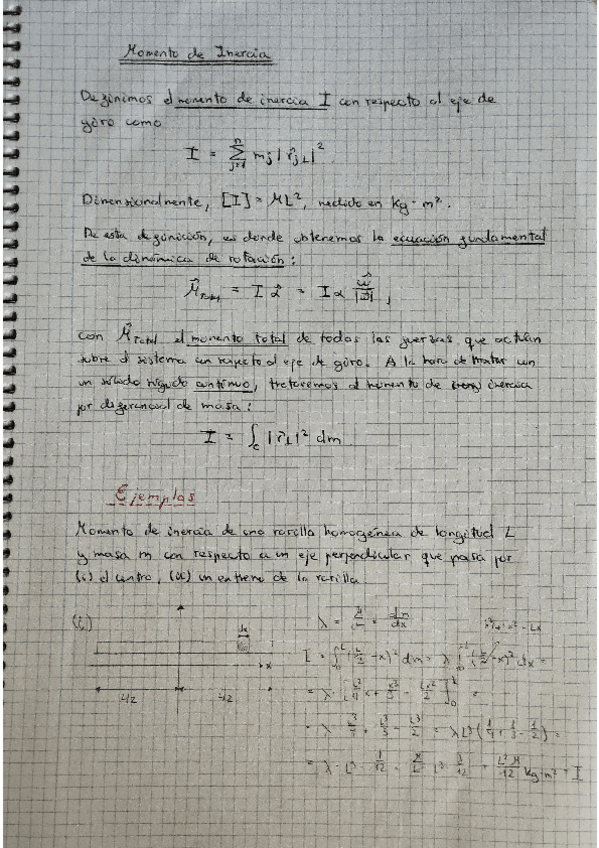 Momento de Inercia
Definimos el momento de inercia I con respecto al eje de
giro como
I = Σ_{j=1}^{n} mj |r⃗j⊥|²
Dimensionalmente, [I] = ML², medido en kg·m².
De esta definición, es donde obtenemos la ecuación fundamental
de la dinámica de rotación:
M⃗Total = I α⃗ = I α ω⃗/|ω⃗| ,
con M⃗Total el momento total de todas las fuerzas que actúan
sobre el sistema con respecto al eje de giro. A la hora de tratar con
un sólido rígido continuo, trataremos al momento de inercia
por diferencial de masa:
I = ∫c |r⃗⊥|² dm
Ejemplos
Momento de inercia de una varilla homogénea de longitud L
y masa m con respecto a un eje perpendicular que pasa por
(i) el centro, (ii) un extremo de la varilla
(i)
dx
x
L/2 L/2
λ = M/L = dm/dx
I = ∫₀ᴸ (L/2 - x)² dm = λ ∫₀ᴸ (L/2 - x)² dx =
= λ · [L²/4 x + x³/3 - Lx²/2]₀ᴸ =
= λ · L³/4 + L³/3 - L³/2 = λL³ (1/4 + 1/3 - 1/2) =
= λ · L³ · 1/12 = M/L · L³ · 1/12 = L²M/12 kg·m² = I